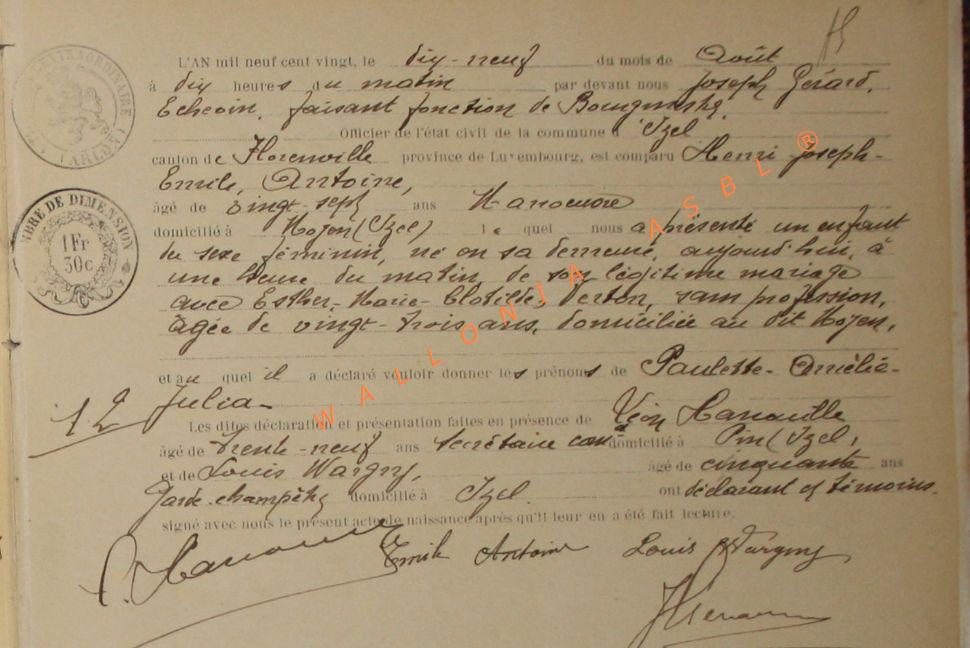 L'AN mil neuf cent vingt, le dix-neuf du mois de Août
à dix heures du matin par devant nous Joseph Gérard,
Echevin, faisant fonction de Bourgmestre,
Officier de l'état civil de la commune d'Izel
canton de Florenville province de Luxembourg, est comparu Henri Joseph-
Emile, Antoine,
âgé de vingt-sept ans Manoeuvre
domicilié à Moyen (Izel) le quel nous a présenté un enfant
du sexe féminin, né en sa demeure, aujourd'hui, à
une heure du matin, de son légitime mariage
avec Esther-Marie-Clotilde Verton, sans profession,
âgée de vingt-trois ans, domiciliée au dit Moyen,
et au quel il a déclaré vouloir donner les prénoms de Paulette-Amélia-
Julia-
12
Les dites déclaration et présentation faites en présence de Léon Hanouille
âgé de trente-neuf ans secrétaire com domicilié à Pin (Izel),
et de Louis Wargny, âgé de cinquante ans
Garde-champêtre domicilié à Izel. ont déclarant et témoins
signé avec nous le présent acte de naissance après qu'il leur en a été fait lecture.
Emile Antoine Louis Wargny
TIMBRE DE DIMENSION
1 Fr
30c
EXTRAORDINAIRE
(ARLON)
WALLONIA ASBL ®